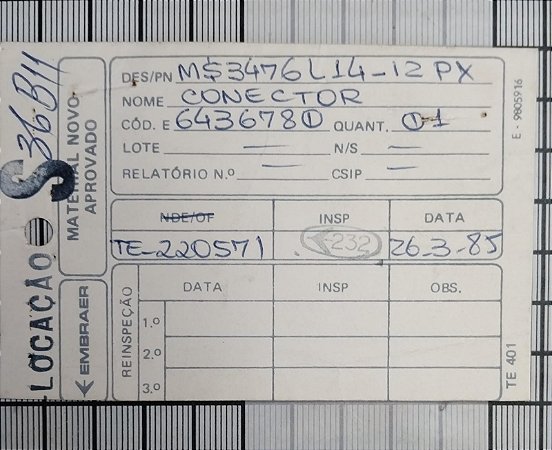 DES/PN MS3476L14-12PX
NOME CONECTOR
CÓD. E 6436780 QUANT. 01
LOTE — N/S —
RELATÓRIO N.º — CSIP —
NDE/OF INSP DATA
TE-220571 232 26-3-85
REINSPEÇÃO
DATA INSP OBS.
1.º
2.º
3.º
MATERIAL NOVO
APROVADO
EMBRAER
S 36B11
LOCAÇÃO
E - 9805916
TE 401